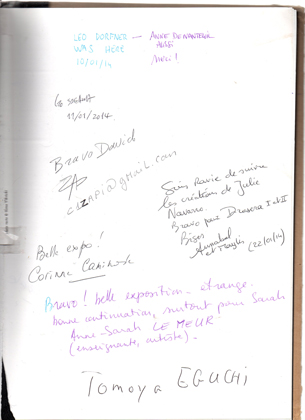 LEO DORFNER — ANNE DE NANTERRE
WAS HERE AUSSI
10/01/14 MERCI !
11/01/2014.
Bravo David
@gmail.com
Suis Ravie de suivre
les créations de Julie
Navarro.
Bravo pour Drosera I et II
Bises
(22/01/14)
Belle expo!
Corinne
Bravo! belle exposition - étrange.
bonne continuation, surtout pour Sarah
Anne-Sarah LE MEUR
(enseignante, artiste).
Tomoya EGUCHI